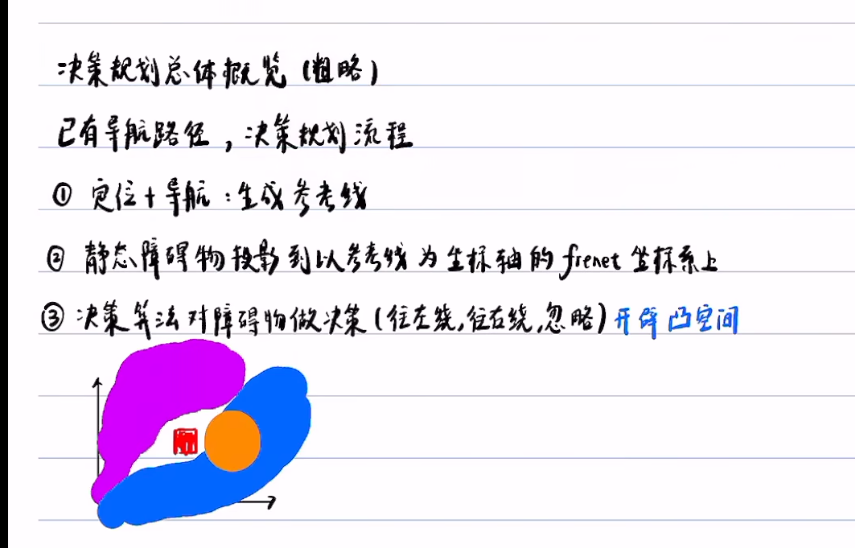 决策规划总体概览(粗略)
已有导航路径,决策规划流程
① 定位+导航:生成参考线
② 静态障碍物投影到以参考线为坐标轴的frenet坐标系上
③ 决策算法对障碍物做决策(往左绕,往右绕,忽略)开辟凸空间